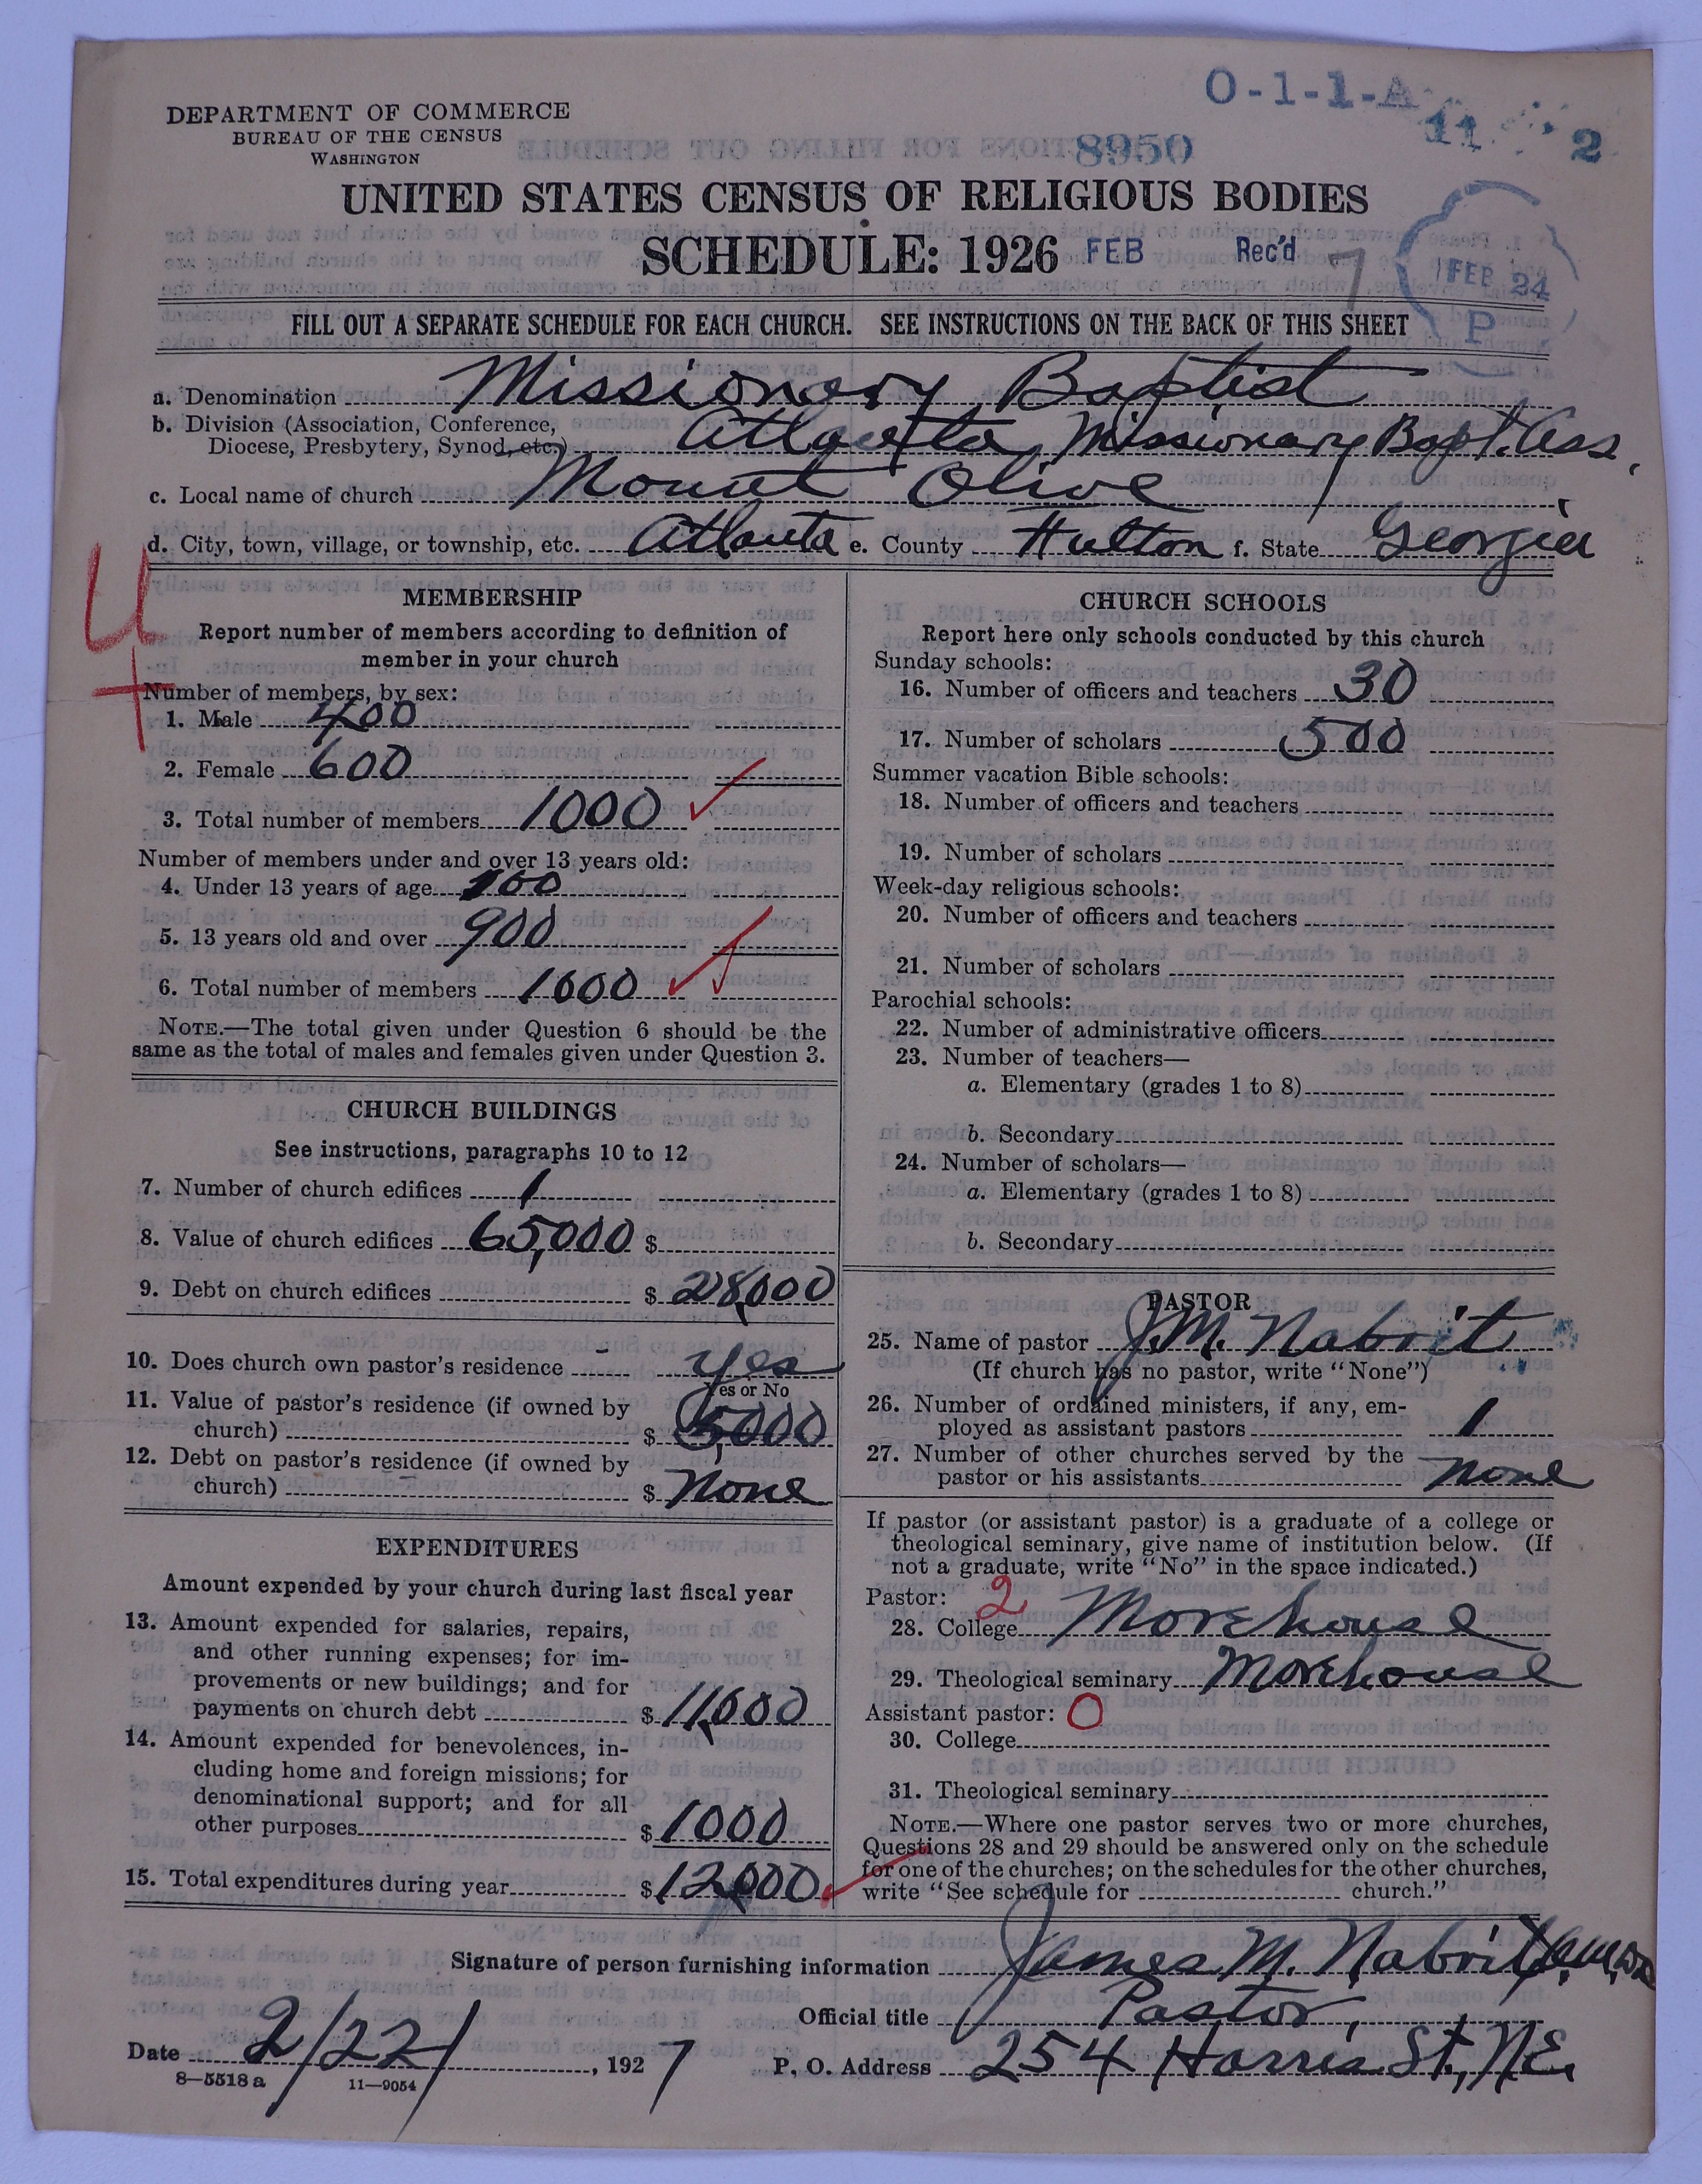 O-1-1-A
11 2
DEPARTMENT OF COMMERCE
BUREAU OF THE CENSUS
WASHINGTON
8950
UNITED STATES CENSUS OF RELIGIOUS BODIES
SCHEDULE: 1926 FEB Rec'd 7
FEB 24
P
FILL OUT A SEPARATE SCHEDULE FOR EACH CHURCH. SEE INSTRUCTIONS ON THE BACK OF THIS SHEET
a. Denomination Missionary Baptist
b. Division (Association, Conference,
Diocese, Presbytery, Synod, etc.) Atlanta Missionary Bapt. Ass.
c. Local name of church Mount Olive
d. City, town, village, or township, etc. Atlanta e. County Fulton f. State Georgia
4
MEMBERSHIP
Report number of members according to definition of
member in your church
Number of members, by sex:
1. Male 400
2. Female 600
3. Total number of members 1000
Number of members under and over 13 years old:
4. Under 13 years of age 100
5. 13 years old and over 900
6. Total number of members 1000
NOTE.—The total given under Question 6 should be the
same as the total of males and females given under Question 3.
CHURCH BUILDINGS
See instructions, paragraphs 10 to 12
7. Number of church edifices 1
8. Value of church edifices 65,000 $
9. Debt on church edifices $ 28,000
10. Does church own pastor's residence yes
Yes or No
11. Value of pastor's residence (if owned by
church) $ 5,000
12. Debt on pastor's residence (if owned by
church) $ None
EXPENDITURES
Amount expended by your church during last fiscal year
13. Amount expended for salaries, repairs,
and other running expenses; for im-
provements or new buildings; and for
payments on church debt $ 11,000
14. Amount expended for benevolences, in-
cluding home and foreign missions; for
denominational support; and for all
other purposes $ 1000
15. Total expenditures during year $ 12,000
CHURCH SCHOOLS
Report here only schools conducted by this church
Sunday schools:
16. Number of officers and teachers 30
17. Number of scholars 500
Summer vacation Bible schools:
18. Number of officers and teachers
19. Number of scholars
Week-day religious schools:
20. Number of officers and teachers
21. Number of scholars
Parochial schools:
22. Number of administrative officers
23. Number of teachers—
a. Elementary (grades 1 to 8)
b. Secondary
24. Number of scholars—
a. Elementary (grades 1 to 8)
b. Secondary
PASTOR
25. Name of pastor J. M. Nabrit
(If church has no pastor, write "None")
26. Number of ordained ministers, if any, em-
ployed as assistant pastors 1
27. Number of other churches served by the
pastor or his assistants none
If pastor (or assistant pastor) is a graduate of a college or
theological seminary, give name of institution below. (If
not a graduate, write "No" in the space indicated.)
Pastor: 2
28. College Morehouse
29. Theological seminary Morehouse
Assistant pastor: 0
30. College
31. Theological seminary
NOTE.—Where one pastor serves two or more churches,
Questions 28 and 29 should be answered only on the schedule
for one of the churches; on the schedules for the other churches,
write "See schedule for church."
Signature of person furnishing information James M. Nabrit
Official title Pastor
Date 2/22/, 1927 P. O. Address 254 Harris St., N.E.
8—5518 a 11—9054